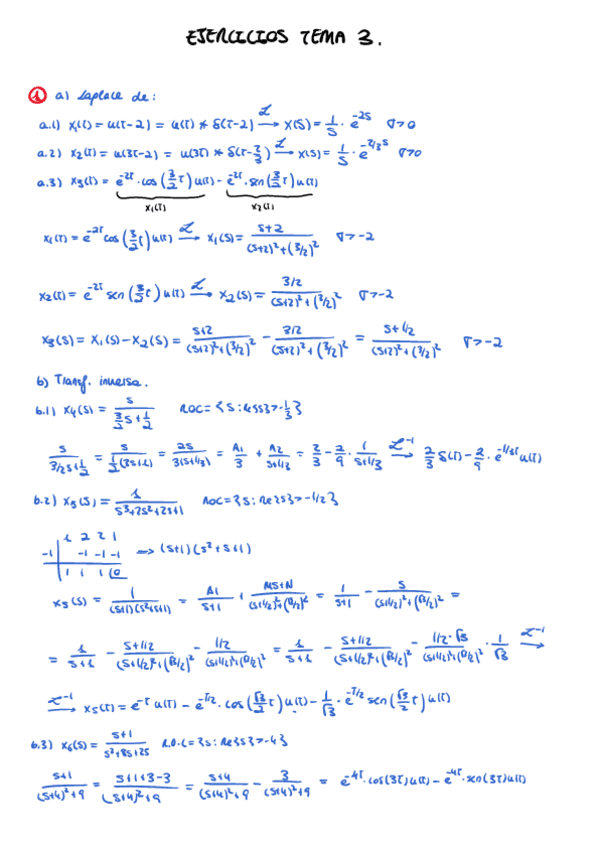 EJERCICIOS TEMA 3.
① a) Laplace de:
a.1) x₁(t) = u(t-2) = u(t) * δ(t-2) —ℒ→ X(S) = 1/S · e^(-2S) σ>0
a.2) x₂(t) = u(3t-2) = u(3t) * δ(t-2/3) —ℒ→ X(S) = 1/S · e^(-2/3 S) σ>0
a.3) x₃(t) = e^(-2t) · cos(3/2 t) u(t) - e^(-2t) · sen(3/2 t) u(t)
x₁(t) x₂(t)
x₁(t) = e^(-2t) cos(3/2 t) u(t) —ℒ→ X₁(S) = (S+2)/((S+2)²+(3/2)²) σ>-2
x₂(t) = e^(-2t) sen(3/2 t) u(t) —ℒ→ X₂(S) = (3/2)/((S+2)²+(3/2)²) σ>-2
X₃(S) = X₁(S) - X₂(S) = (S+2)/((S+2)²+(3/2)²) - (3/2)/((S+2)²+(3/2)²) = (S+1/2)/((S+2)²+(3/2)²) σ>-2
b) Transf. inversa.
b.1) X₄(S) = S/(3/2 S + 1/2) ROC = {S: Re{S} > -1/3}
S/(3/2 S + 1/2) = S/(1/2 (3S+1)) = 2S/(3(S+1/3)) = A1/3 + A2/(S+1/3) = 2/3 - 2/9 · 1/(S+1/3) —ℒ⁻¹→ 2/3 δ(t) - 2/9 · e^(-1/3t) u(t)
b.2) X₅(S) = 1/(S³+2S²+2S+1) ROC = {S: Re{S} > -1/2}
1 2 2 1
-1 -1 -1 -1 ⟹ (S+1)(S²+S+1)
1 1 1 |0
X₅(S) = 1/((S+1)(S²+S+1)) = A1/(S+1) + (MS+N)/((S+1/2)²+(√3/2)²) = 1/(S+1) - S/((S+1/2)²+(√3/2)²) =
= 1/(S+1) - (S+1/2)/((S+1/2)²+(√3/2)²) - (1/2)/((S+1/2)²+(√3/2)²) = 1/(S+1) - (S+1/2)/((S+1/2)²+(√3/2)²) - (1/2·√3)/((S+1/2)²+(√3/2)²) · 1/√3 —ℒ⁻¹→
—ℒ⁻¹→ x₅(t) = e^(-t) u(t) - e^(-t/2) · cos(√3/2 t) u(t) - 1/√3 · e^(-t/2) sen(√3/2 t) u(t)
b.3) X₆(S) = (S+1)/(S²+8S+25) R.O.C = {S: Re{S} > -4}
(S+1)/((S+4)²+9) = (S+1+3-3)/((S+4)²+9) = (S+4)/((S+4)²+9) - 3/((S+4)²+9) = e^(-4t) · cos(3t) u(t) - e^(-4t) · sen(3t) u(t)